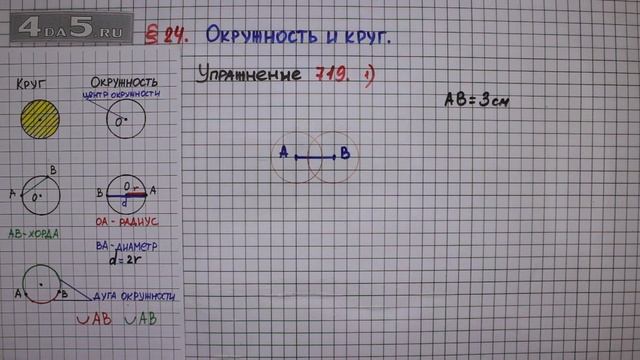 4DA5.RU
§ 24. Окружность и круг.
Упражнение 719. 1)
AB = 3 см
A B
Круг
Окружность
центр окружности
O
B
A
O
AB - хорда
O r
B A
d
OA - радиус
BA - диаметр
d = 2r
A B
дуга окружности
◡AB ◡AB